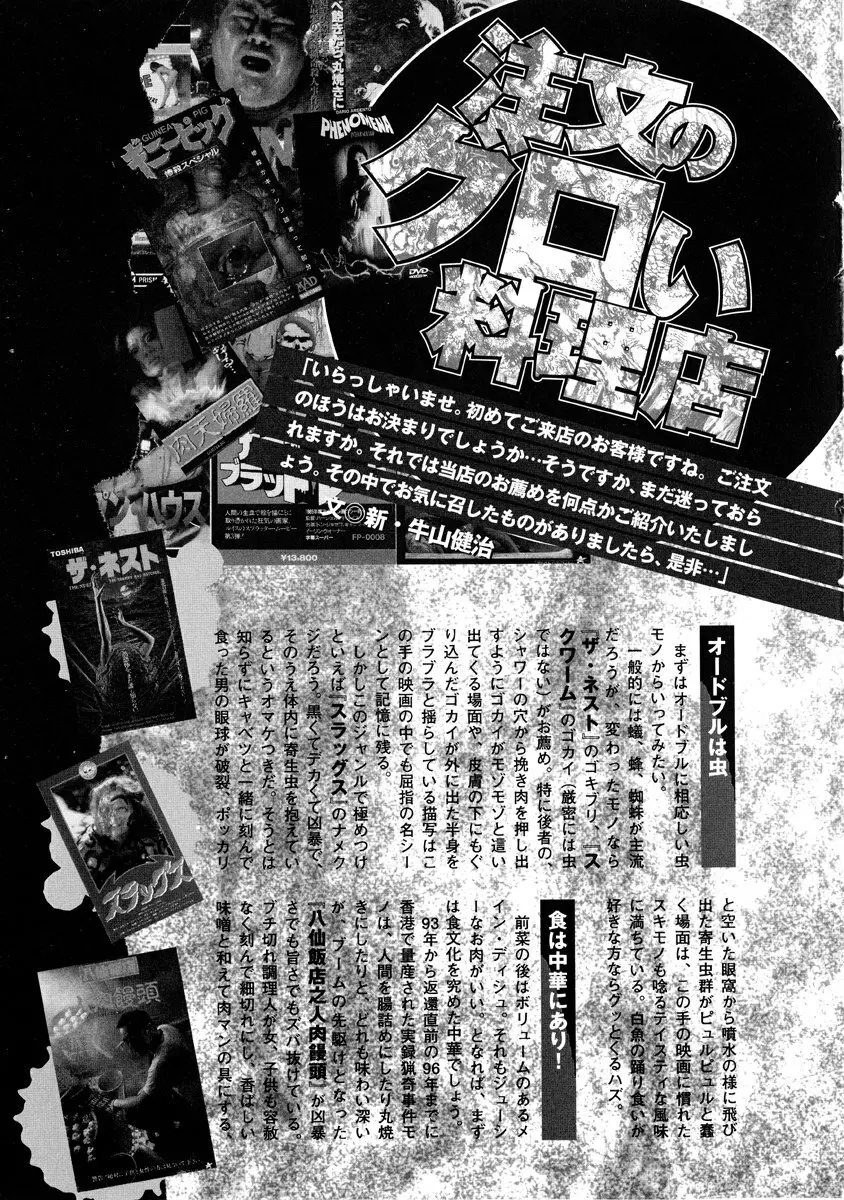 注文の
グロい
料理店
「いらっしゃいませ。初めてご来店のお客様ですね。ご注文
のほうはお決まりでしょうか…そうですか、まだ迷っておら
れますか。それでは当店のお薦めを何点かご紹介いたしまし
ょう。その中でお気に召したものがありましたら、是非…」
文◎新・牛山健治
オードブルは虫
まずはオードブルに相応しい虫
モノからいってみたい。
一般的には蟻、蜂、蜘蛛が主流
だろうが、変わったモノなら
『ザ・ネスト』のゴキブリ、『ス
クワーム』のゴカイ（厳密には虫
ではない）がお薦め。特に後者の、
シャワーの穴から挽き肉を押し出
すようにゴカイがモゾモゾと這い
出てくる場面や、皮膚の下にもぐ
り込んだゴカイが外に出た半身を
ブラブラと揺らしている描写はこ
の手の映画の中でも屈指の名シー
ンとして記憶に残る。
しかしこのジャンルで極めつけ
といえば『スラッグス』のナメク
ジだろう。黒くてデカくて凶暴で、
そのうえ体内に寄生虫を抱えてい
るというオマケつきだ。そうとは
知らずにキャベツと一緒に刻んで
食った男の眼球が破裂、ポッカリ
と空いた眼窩から噴水の様に飛び
出た寄生虫群がピュルピュルと蠢
く場面は、この手の映画に慣れた
スキモノも唸るテイスティな風味
に満ちている。白魚の踊り食いが
好きな方ならグッとくるハズ。
食は中華にあり！
前菜の後はボリュームのあるメ
イン・ディシュ。それもジューシ
ーなお肉がいい。となれば、まず
は食文化を究めた中華でしょう。
93年から返還直前の96年までに
香港で量産された実録猟奇事件モ
ノは、人間を腸詰めにしたり丸焼
きにしたりと、どれも味わい深い
が、ブームの先駆けとなった
『八仙飯店之人肉饅頭』が凶暴
さでも旨さでもズバ抜けている。
ブチ切れ調理人が女、子供も容赦
なく刻んで細切れにし、香ばしい
味噌と和えて肉マンの具にする。
GUINEA PIG
ギニーピッグ
惨殺スペシャル
DARIO ARGENTO
PHENOMENA
DVD
肉天婦羅
ブラッド
¥13,800
FP-0008
TOSHIBA
ザ・ネスト
スラッグス